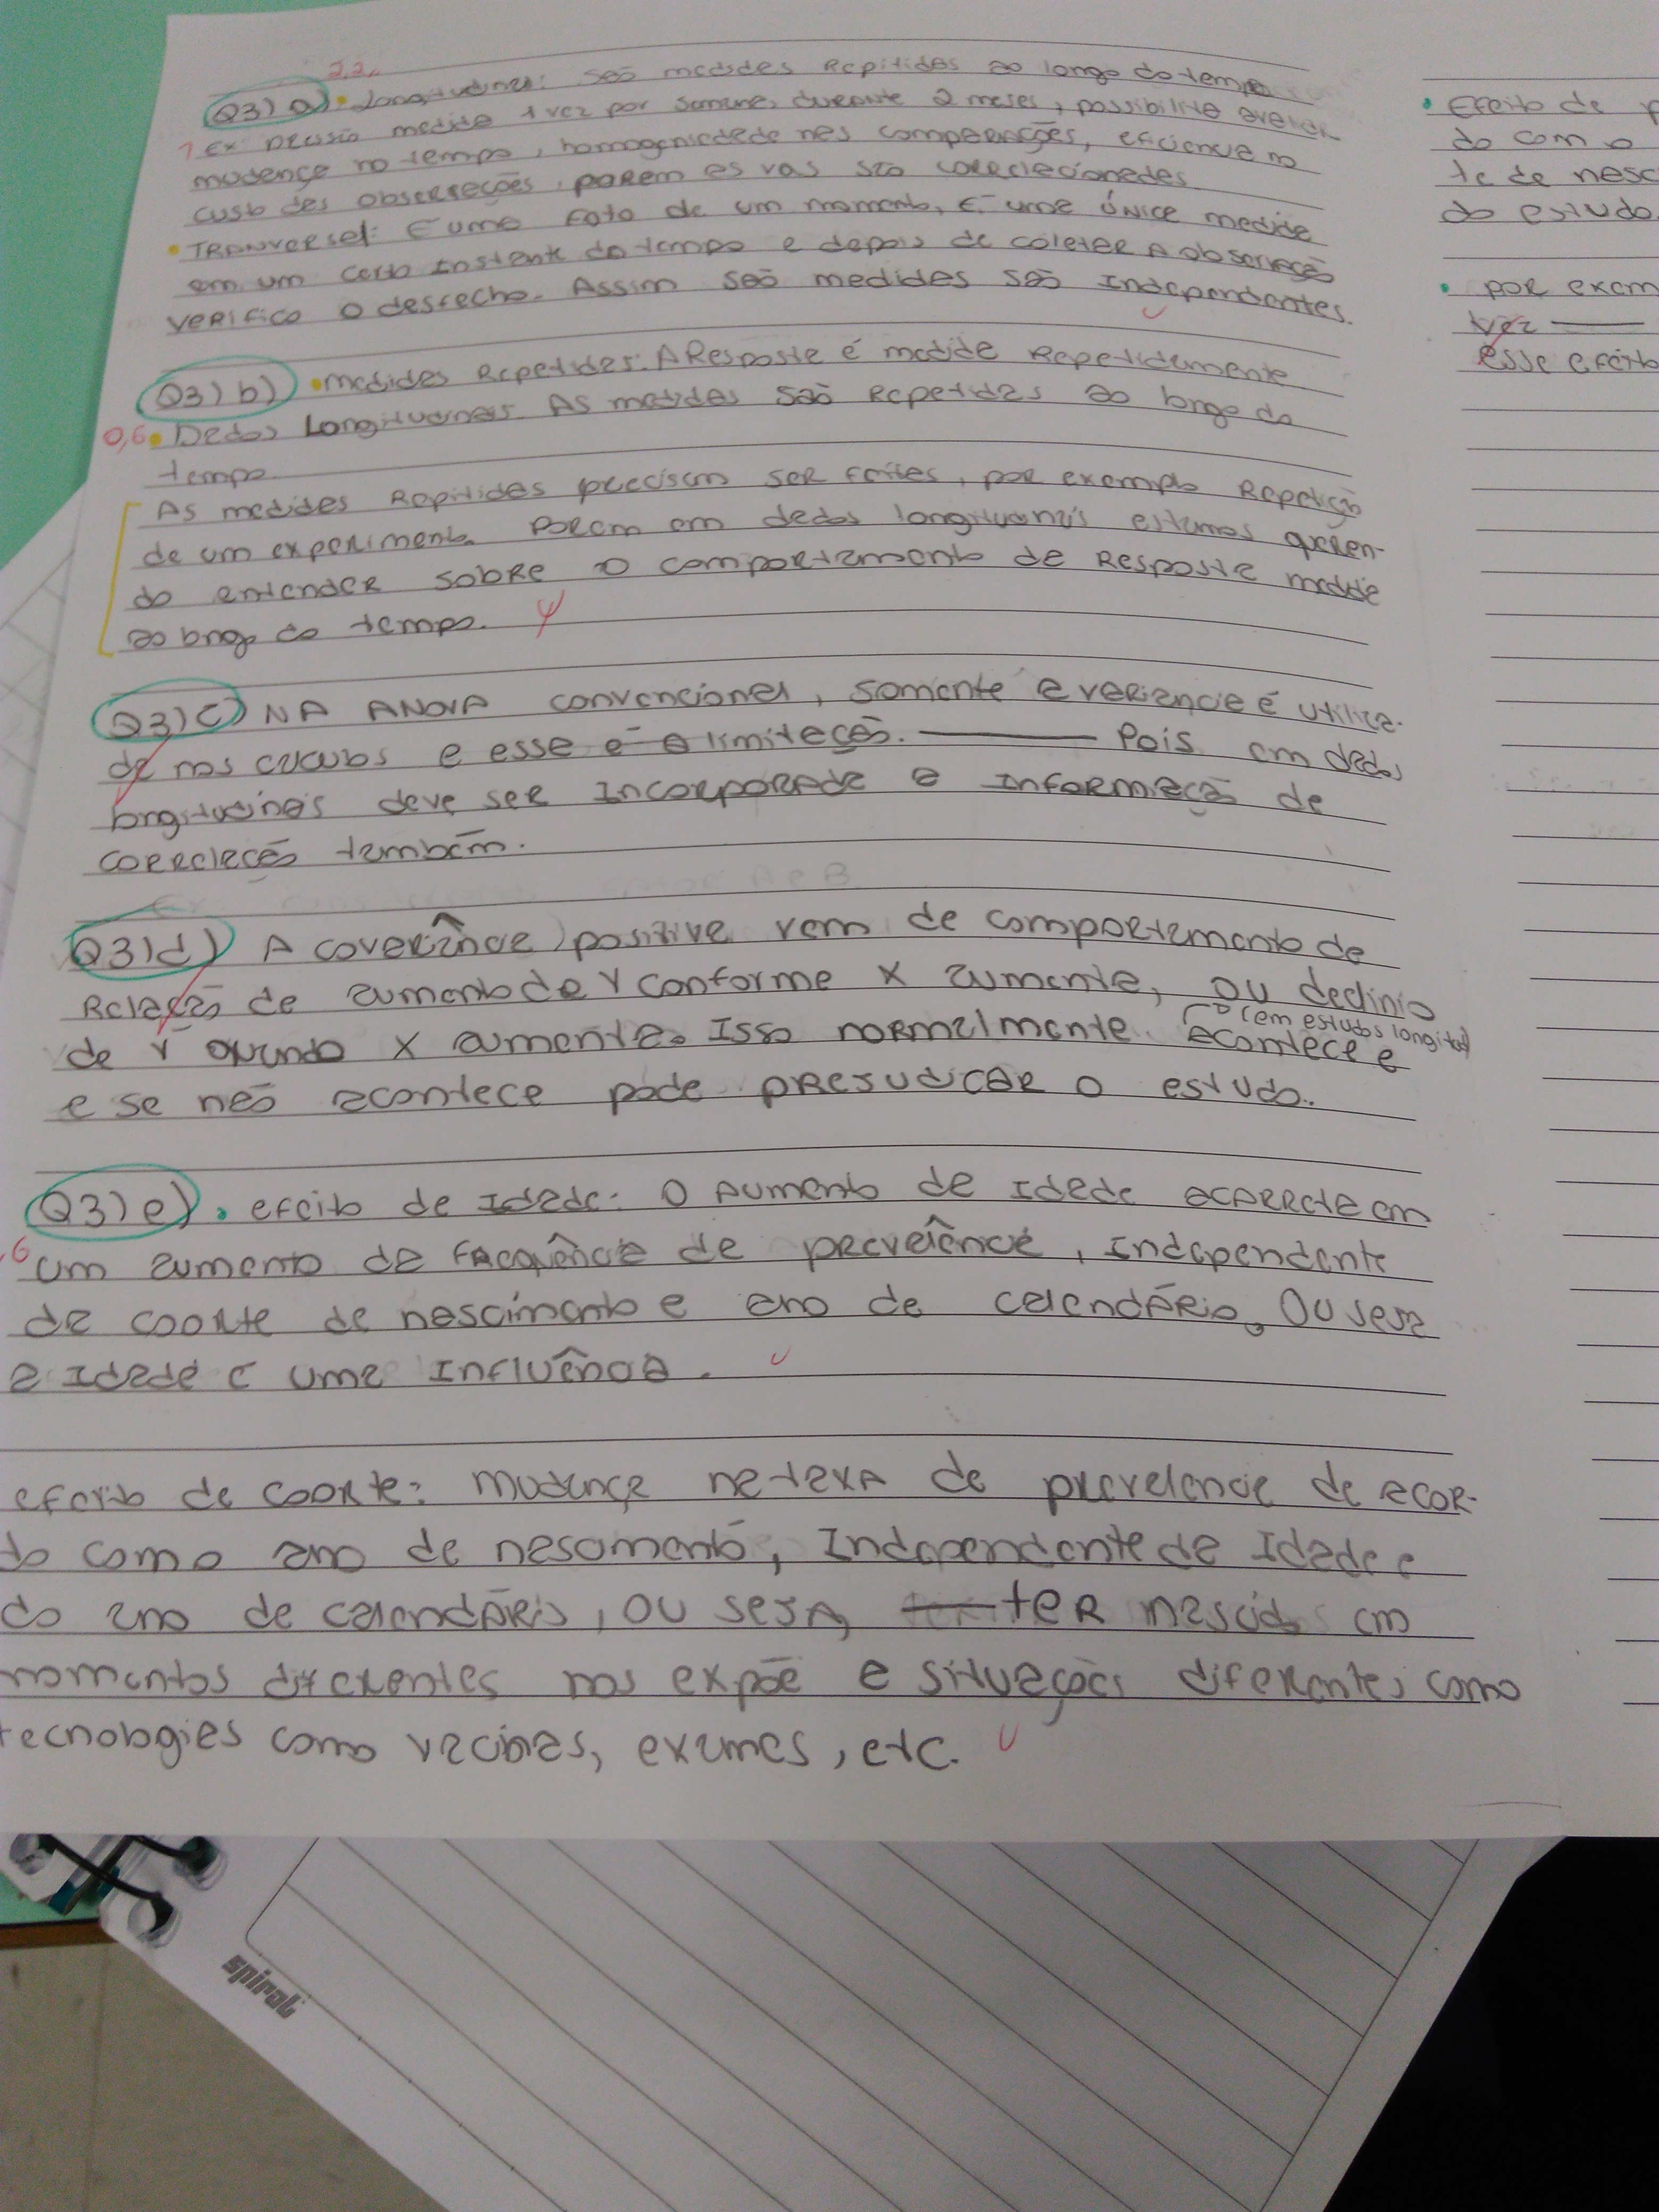 2,2
Q3) a) • Longitudinal: São medidas Repitidas ao longo do tempo
1 Ex: pressão medida 1 vez por semana, durante 2 meses, possibilita avaliar
mudança no tempo, homogeniedade nas comparações, eficiencia no
custo das observações, porém as vas são correlacionadas
• TRANVERSAL: É uma Foto de um momento, É uma única medida
em um certo instante do tempo e depois de coletar A observação
verifico o desfecho. Assim São medidas São Independentes.
Q3) b) • medidas Repetidas: A Resposta é medida Repetidamente
0,6 • Dados Longitudinais. AS medidas São Repetidas ao longo do
tempo.
As medidas Repitidas precisam ser feitas, por exemplo Repetição
de um experimento. Porem em dados longitudinais estamos queren-
do entender sobre o comportamento da Resposta medida
ao longo do tempo.
Q3) c) NA ANOVA convencional, somente a variancia é utiliza-
da nos cálculos e esse é a limitação. Pois em dados
longitudinais deve ser Incorporada a informação de
correlação também.
Q3) d) A covariância positiva vem de comportamento de
Relação de aumento de Y conforme X aumenta, ou declinio
de Y quando X aumenta. Isso normalmente acontece e
(em estudos longitud)
e se não acontece pode presudicar o estudo.
Q3) e) • efeito de Idade: O Aumento da Idade acarreta em
,6 um aumento da Frequência de prevalência, Independente
da coorte de nascimento e ano de calendário, Ou seja
a Idade é uma Influência.
efeito de coorte: mudança na taxa de prevalencia de acor-
do como ano de nascimento, Independente da Idade e
do ano de calendário, OU SEJA, ter nascido em
momentos diferentes nos expõe a situações diferentes como
tecnologias como vacinas, exames, etc.
• Efeito de p
do com o
te de nasc
do estudo
• por exem
vez
esse efeito
spiral